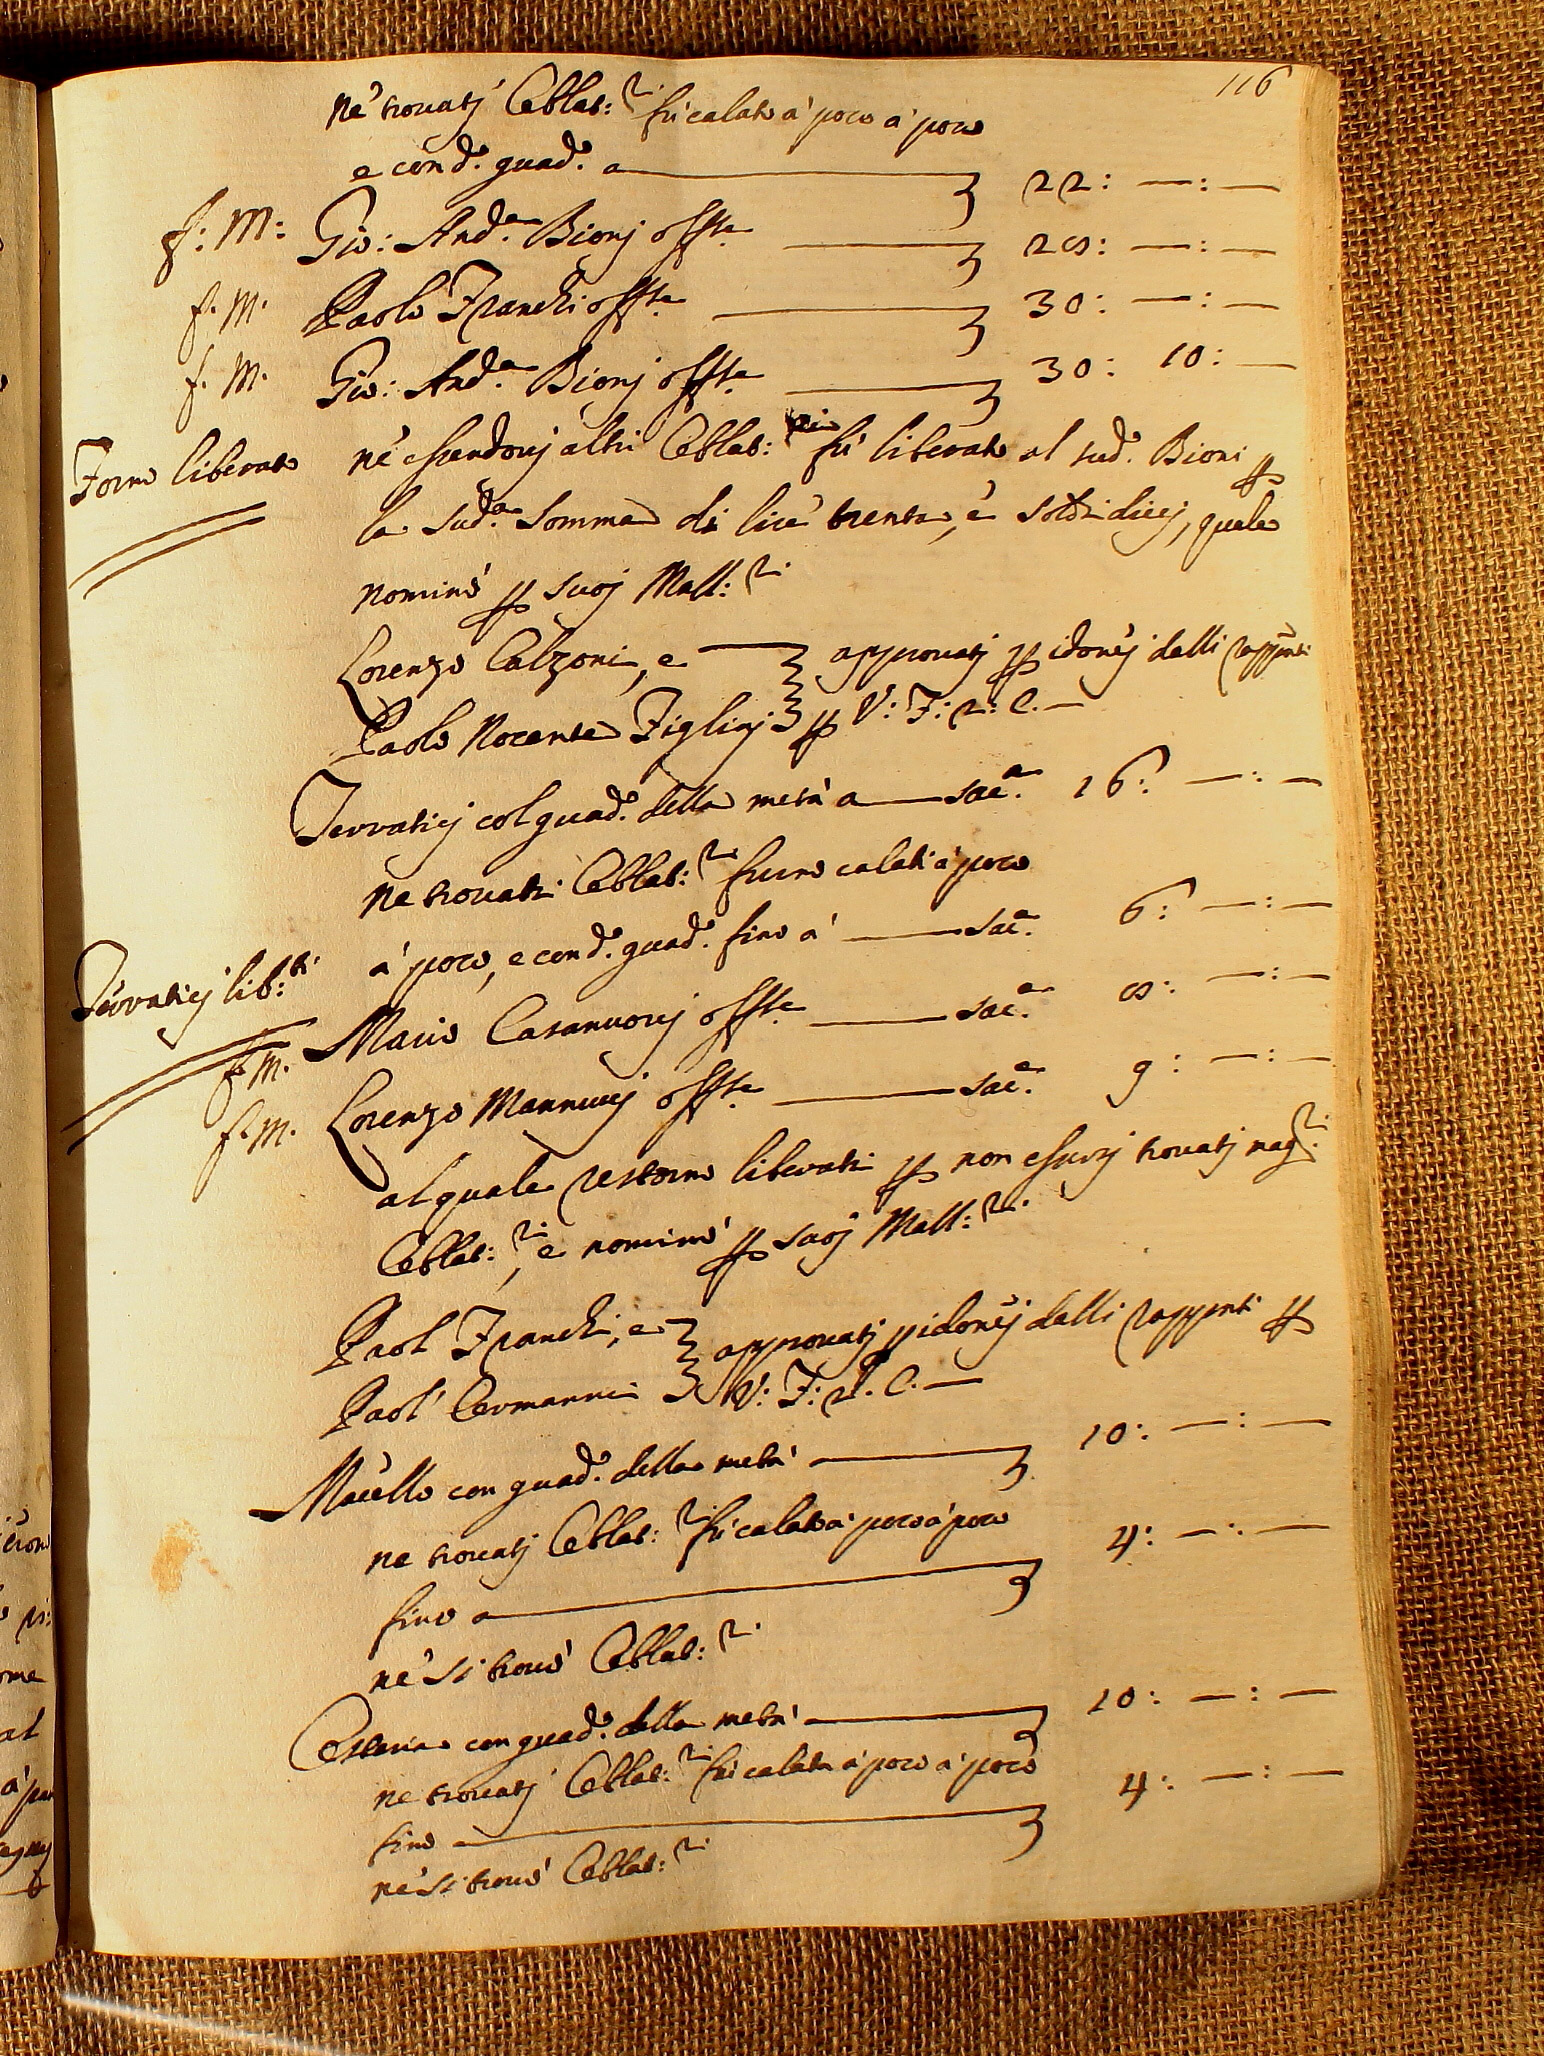 116
né trovatj Oblat:ri fù calato à poco à poco
e con d.o guad.o a — 22: —: —
f: M: Gio: And.a Bionj offse — 28: —: —
f. M. Paolo Franchi offse — 30: —: —
f. M. Gio: And.a Bionj offse — 30: 10: —
Forno liberato
né essendovj altri Oblat:ri fù liberato al sud.o Bioni p
la sud.a somma di lire trenta, e soldi diecj, quale
nominò p suoj Mall:ri
Lorenzo Calzoni, e — approvatj p idonej dalli rapp̃nti
Paolo Nocente Figlinj p V: F: 2: C. —
Terraticj col guad.o della metà a — sac.a 16: —: —
ne trovati Oblat:ri furno calati à poco
à poco, e con d.o guad.o fino à — sac.a 6: —: —
Terraticj lib:ti
f. M. Mario Casanuovj offse — sac.a 8: —: —
f. M. Lorenzo Mannucj offse — sac.a 9: —: —
al quale restorno liberati p non essersj trovatj mag.ri
Oblat:ri, e nominò p suoj Mall:ri
Paol Franchi, e approvatj p idonej dalli rapp̃nti p
Paol' Cermanni V: F: 2. C. —
Macello con guad.o della metà — 10: —: —
ne trovatj Oblat:ri fù calato à poco à poco
fino a — 4: —: —
né si trovò Oblat:ri
Osteria con guad.o della metà — 10: —: —
ne trovatj Oblat:ri fù calata à poco à poco
fino a — 4: —: —
né si trovò Oblat:ri